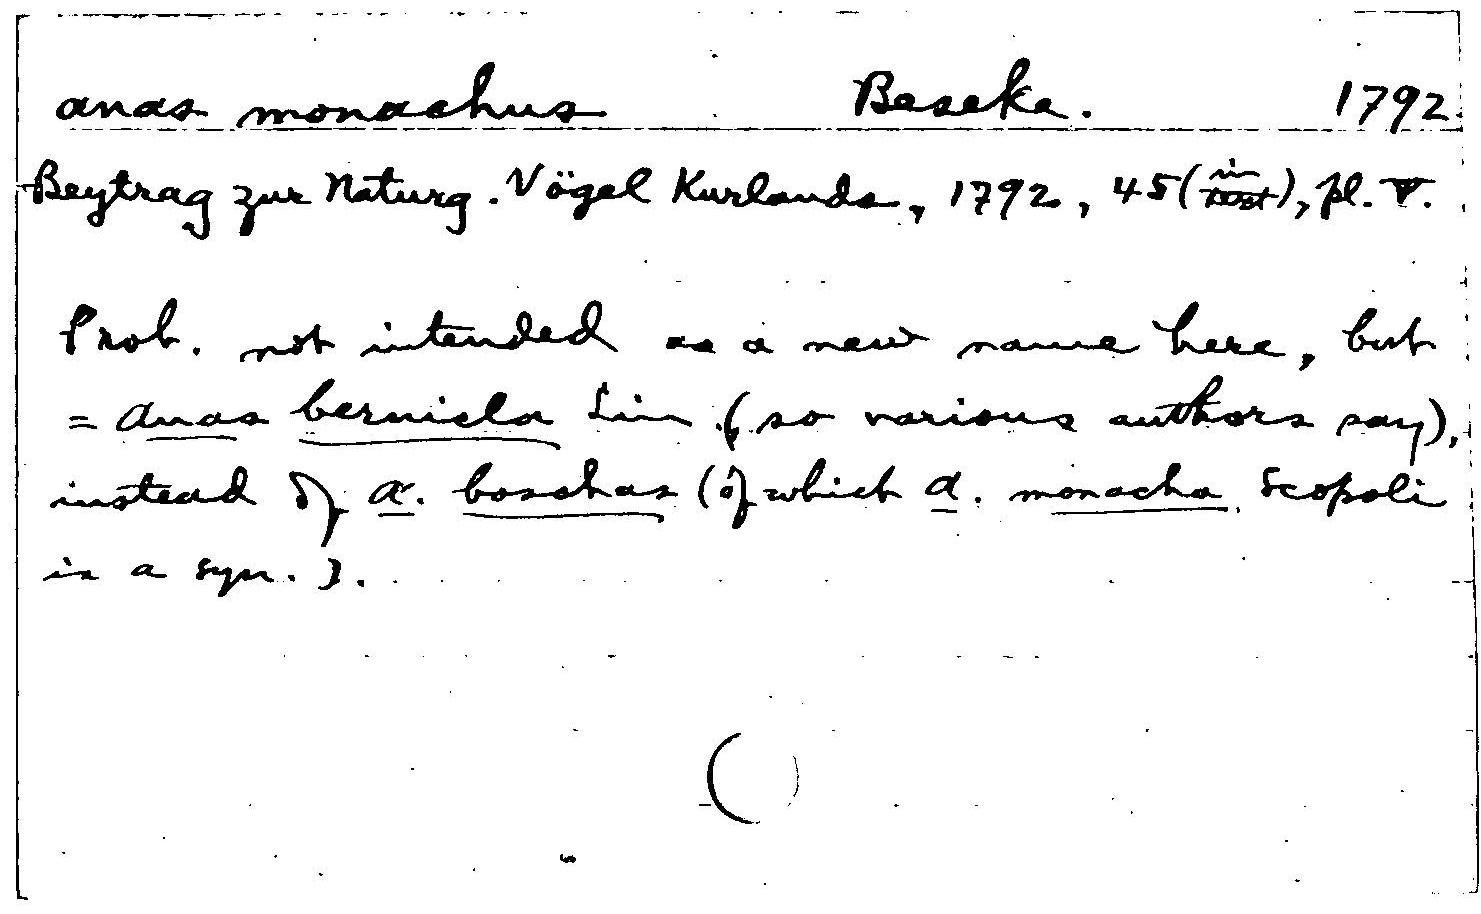 Anas monachus Beseke. 1792.
Beytrag zur Naturg. Vögel Kurlands, 1792, 45 (in text), pl. V.
Prob. not intended as a new name here, but
= Anas bernicla Lin. (so various authors say),
instead of A. boschas (of which A. monacha Scopoli
is a syn.).